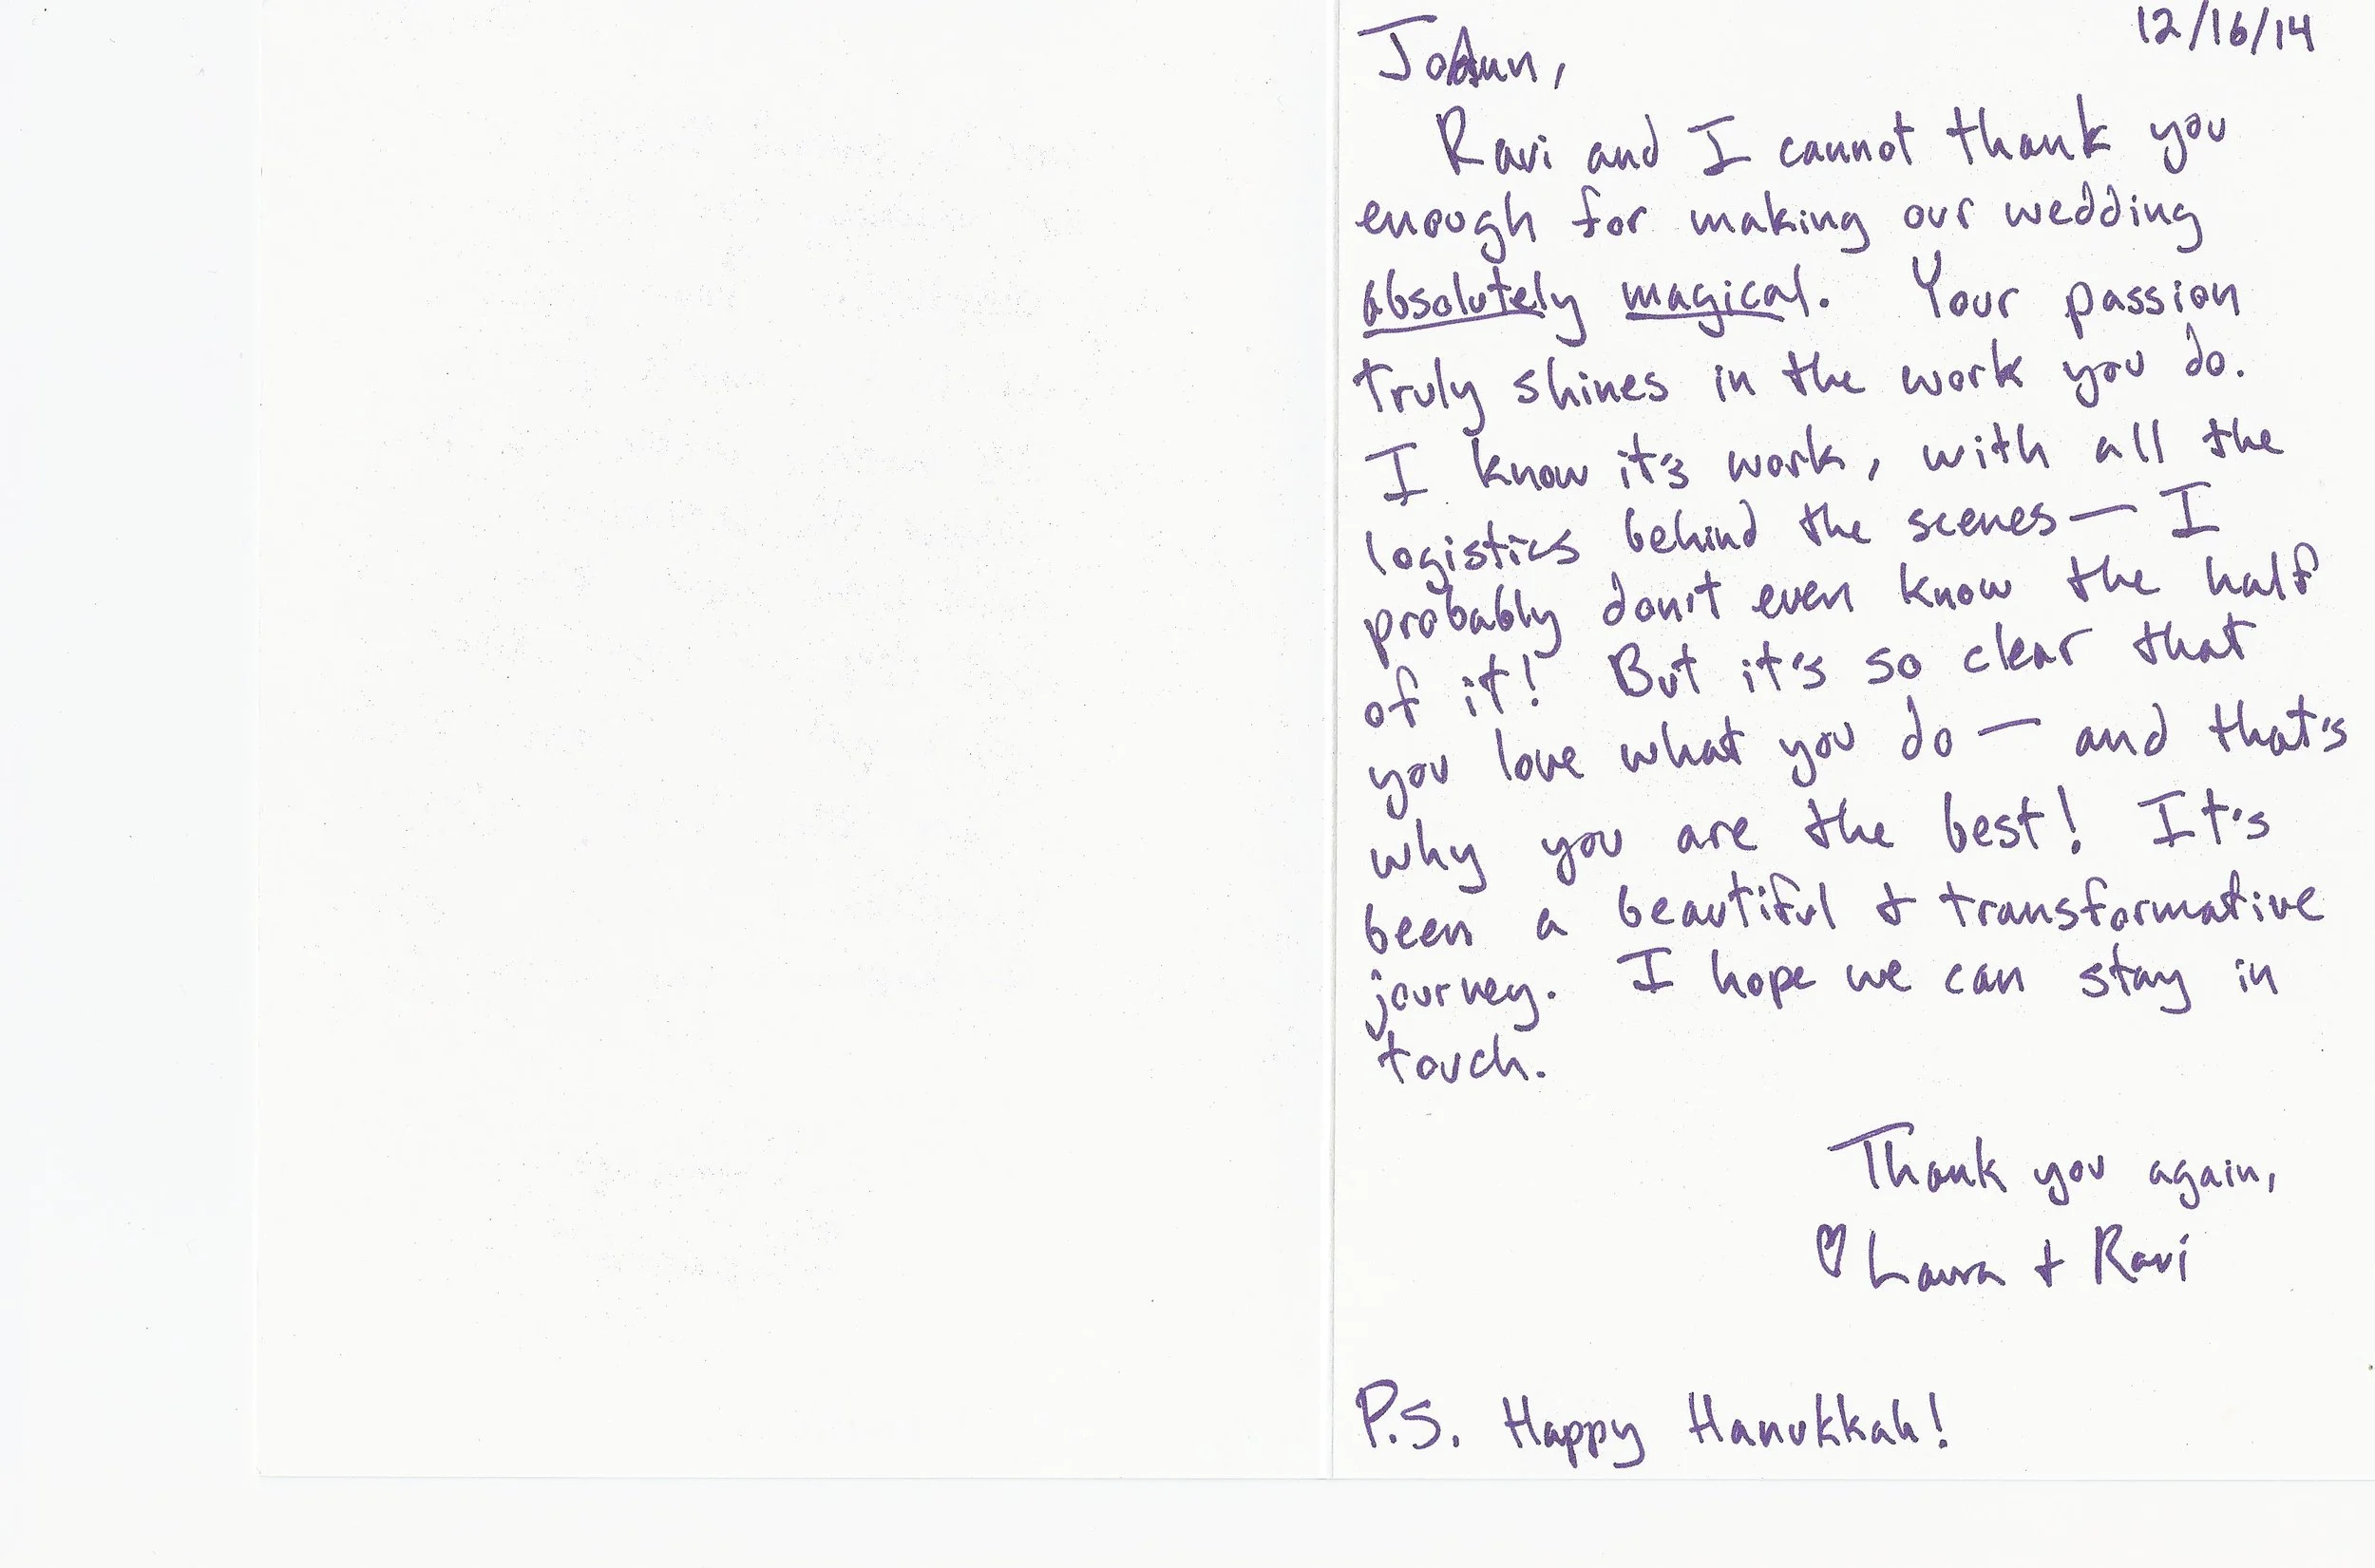 12/16/14
JoAnn,
Ravi and I cannot thank you
enough for making our wedding
absolutely magical. Your passion
truly shines in the work you do.
I know it's work, with all the
logistics behind the scenes — I
probably don't even know the half
of it! But it's so clear that
you love what you do — and that's
why you are the best! It's
been a beautiful + transformative
journey. I hope we can stay in
touch.
Thank you again,
♡ Laura + Ravi
P.S. Happy Hanukkah!